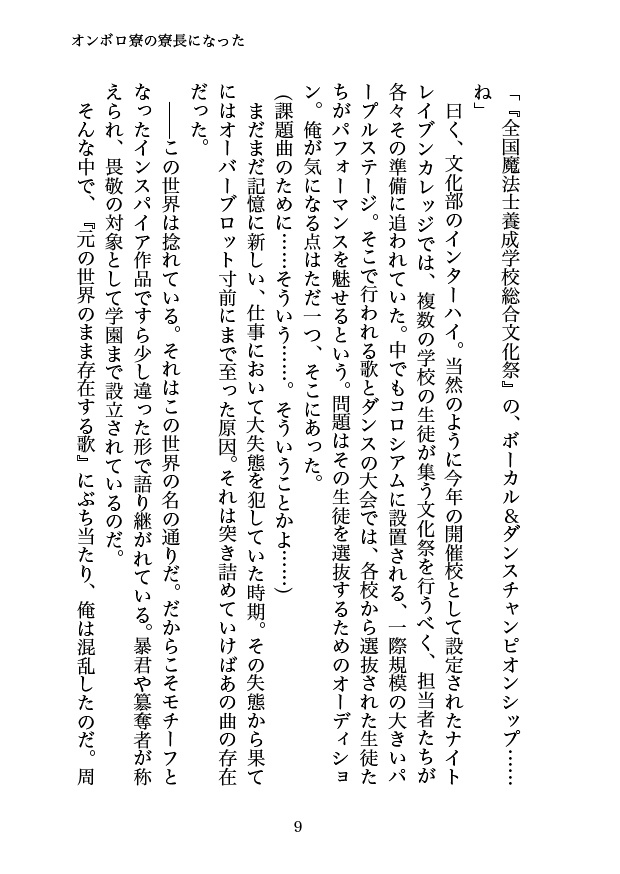 オンボロ寮の寮長になった
「『全国魔法士養成学校総合文化祭』の、ボーカル＆ダンスチャンピオンシップ……
ね」
　曰く、文化部のインターハイ。当然のように今年の開催校として設定されたナイト
レイブンカレッジでは、複数の学校の生徒が集う文化祭を行うべく、担当者たちが
各々その準備に追われていた。中でもコロシアムに設置される、一際規模の大きいパ
ープルステージ。そこで行われる歌とダンスの大会では、各校から選抜された生徒た
ちがパフォーマンスを魅せるという。問題はその生徒を選抜するためのオーディショ
ン。俺が気になる点はただ一つ、そこにあった。
（課題曲のために……そういう……。そういうことかよ……）
　まだまだ記憶に新しい、仕事において大失態を犯していた時期。その失態から果て
にはオーバーブロット寸前にまで至った原因。それは突き詰めていけばあの曲の存在
だった。
　――この世界は捻れている。それはこの世界の名の通りだ。だからこそモチーフと
なったインスパイア作品ですら少し違った形で語り継がれている。暴君や簒奪者が称
えられ、畏敬の対象として学園まで設立されているのだ。
　そんな中で、『元の世界のまま存在する歌』にぶち当たり、俺は混乱したのだ。周
9